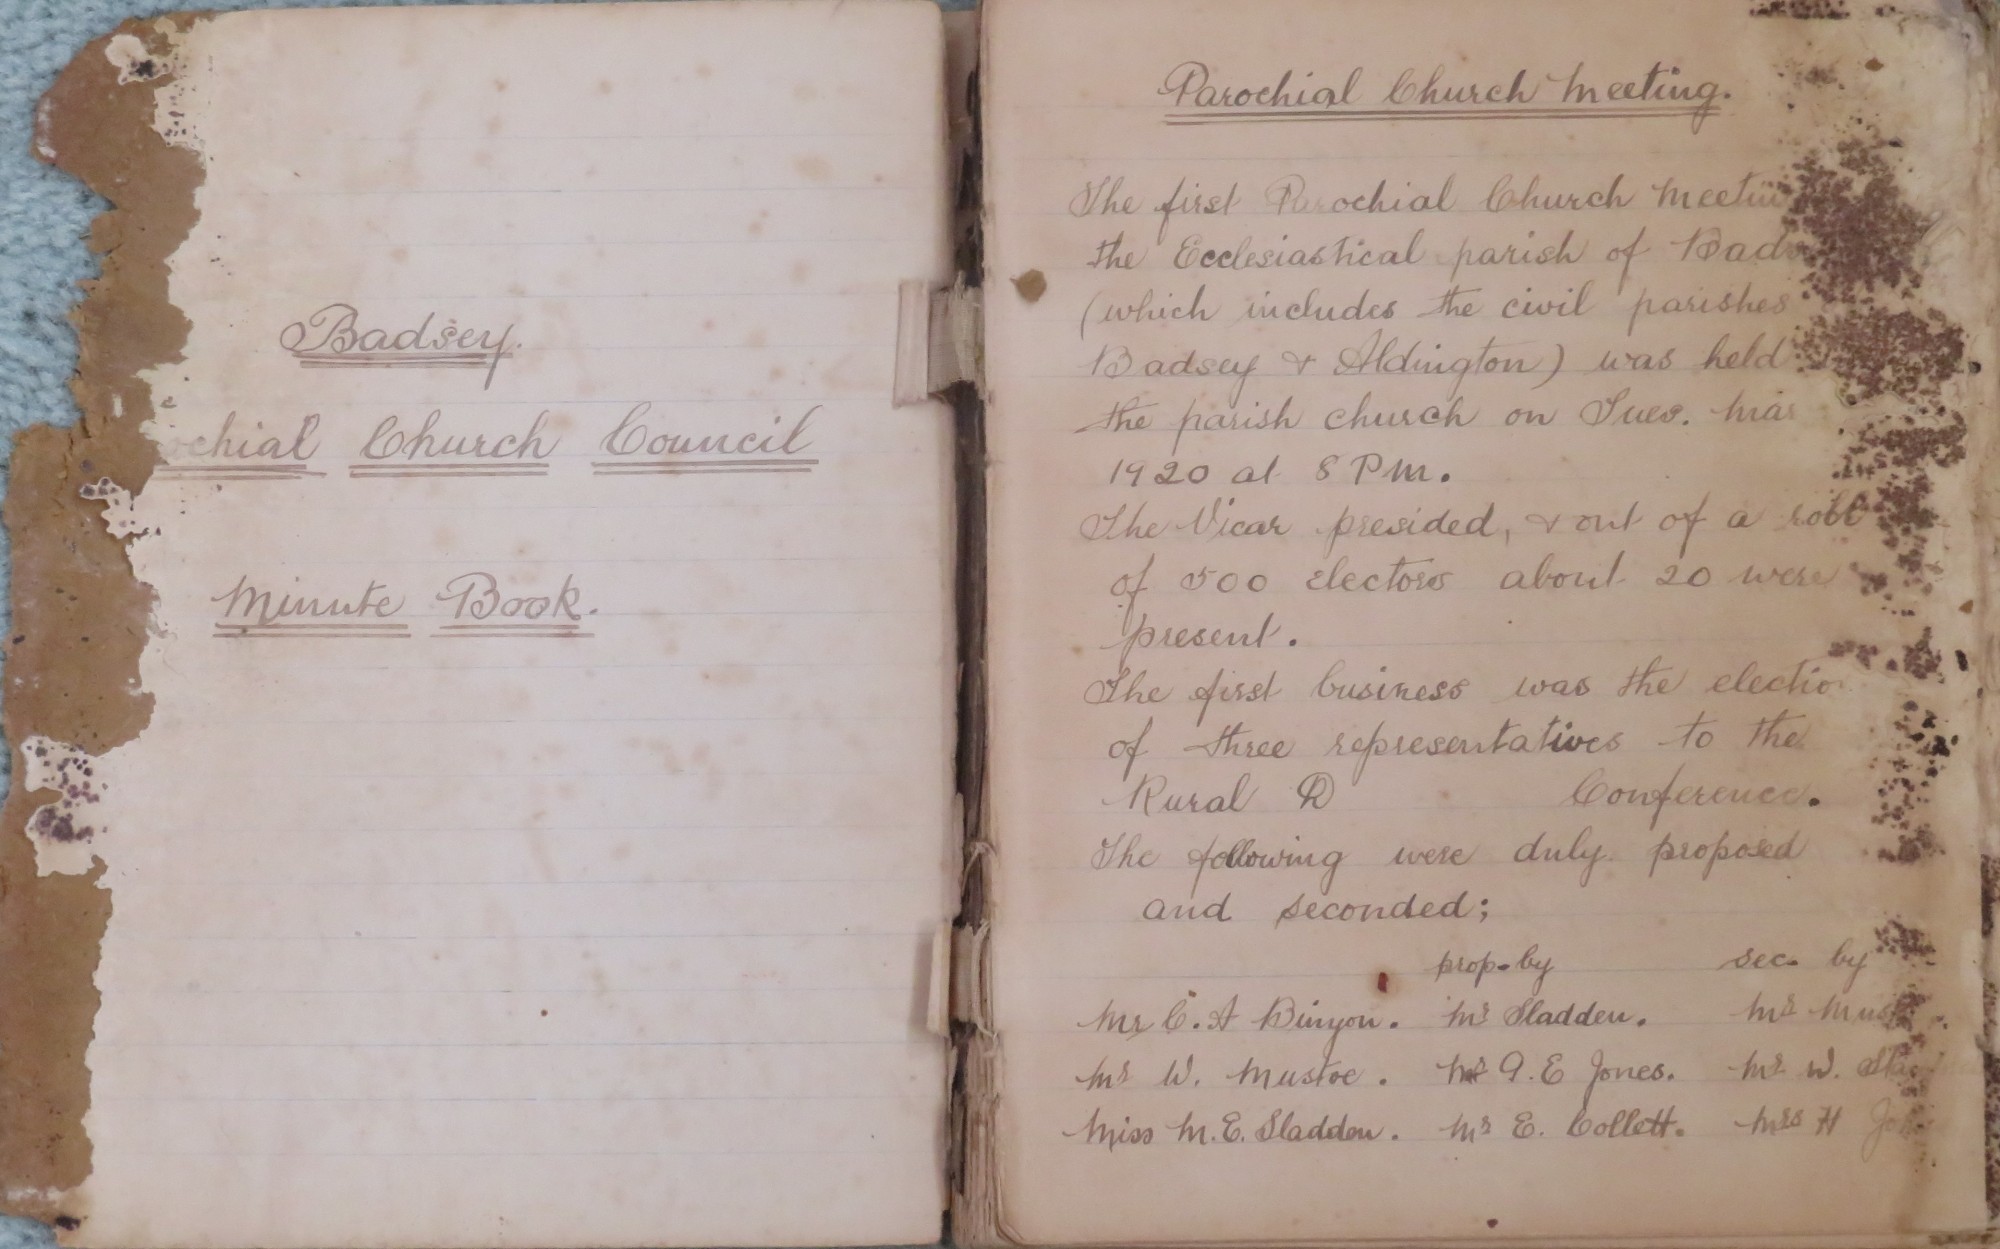 Badsey.
ochial Church Council
Minute Book.
Parochial Church Meeting.
The first Parochial Church Meetin
the Ecclesiastical parish of Bads
(which includes the civil parishes
Badsey & Aldington) was held
the parish church on Tues. Mar
1920 at 8 P.M.
The Vicar presided, & out of a roll
of 500 electors about 20 were
present.
The first business was the electio
of three representatives to the
Rural D Conference.
The following were duly proposed
and seconded;
prop. by sec. by
Mr C. A Binyon. Mr Sladden. Mr Must
Mr W. Mustoe. Mr A. E Jones. Mr W. Sla
Miss M. E. Sladden. Mr E. Collett. Mrs H Jo